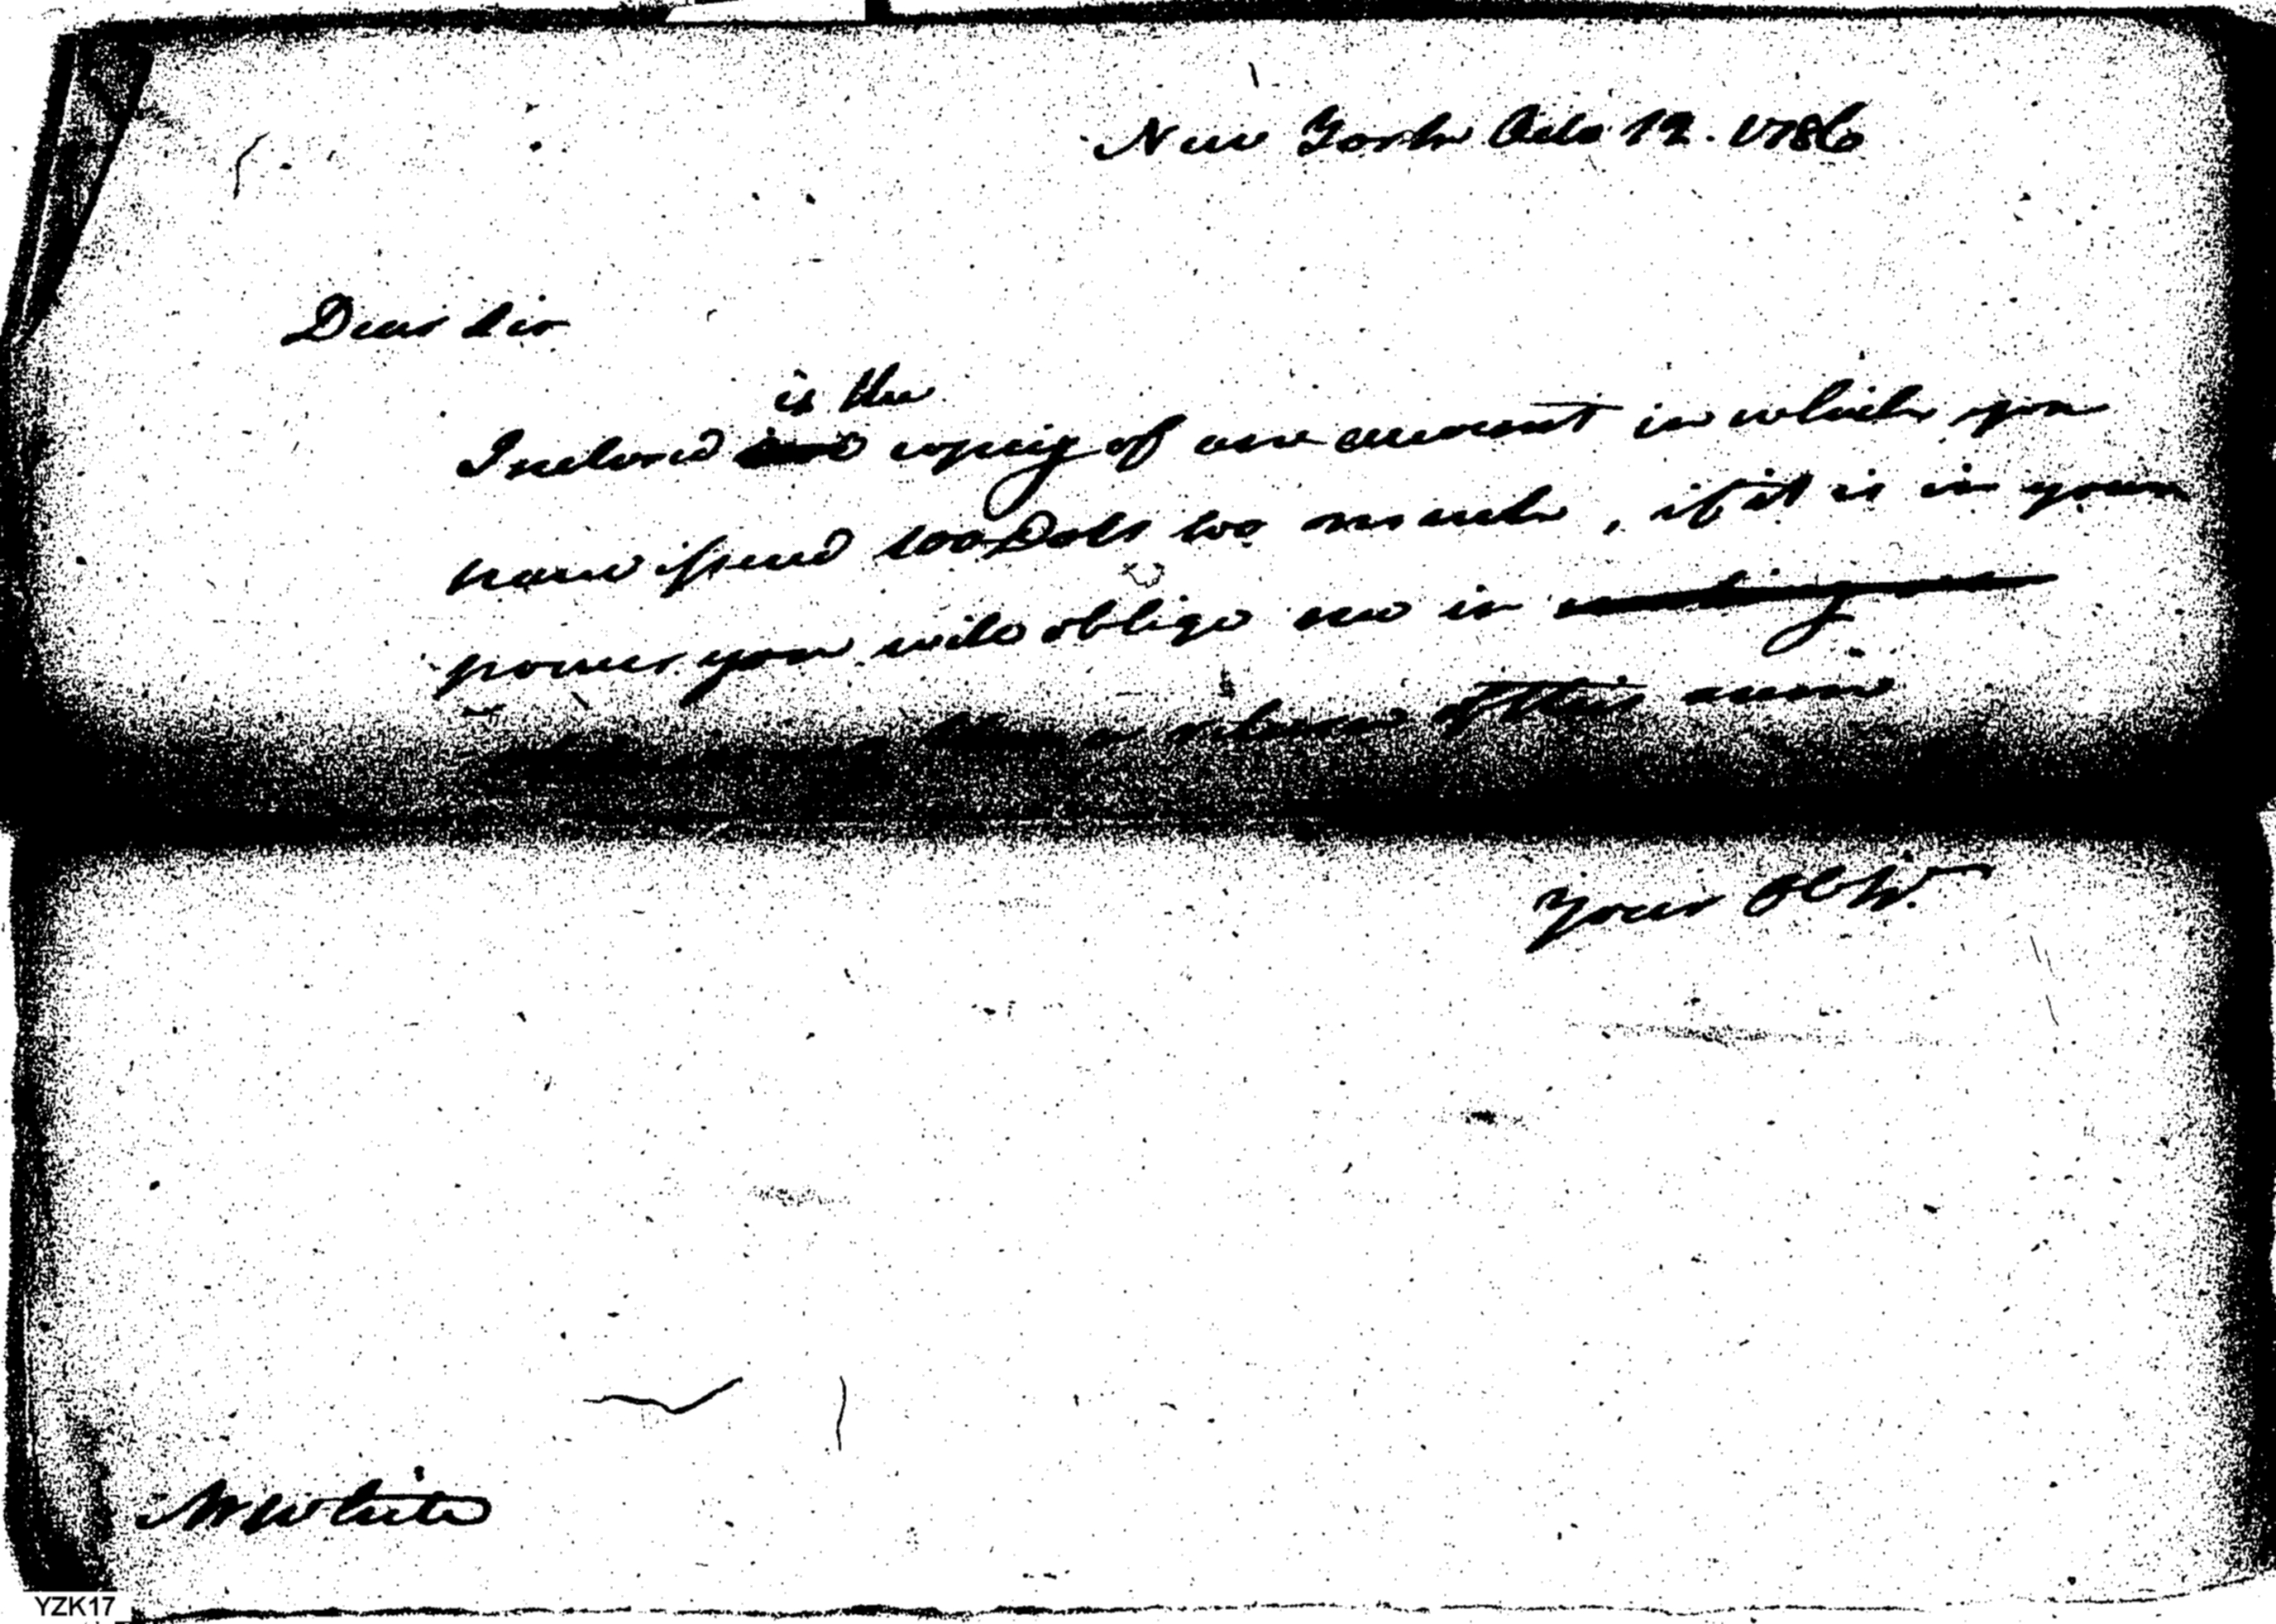 New York Octo 12. 1786
Dear Sir
is the
Inclosed copuy of one account in which you
have issued 100 Dols too much, if it is in your
power you will oblige me in
a release of this
Your Ob S.
Mr White
YZK17